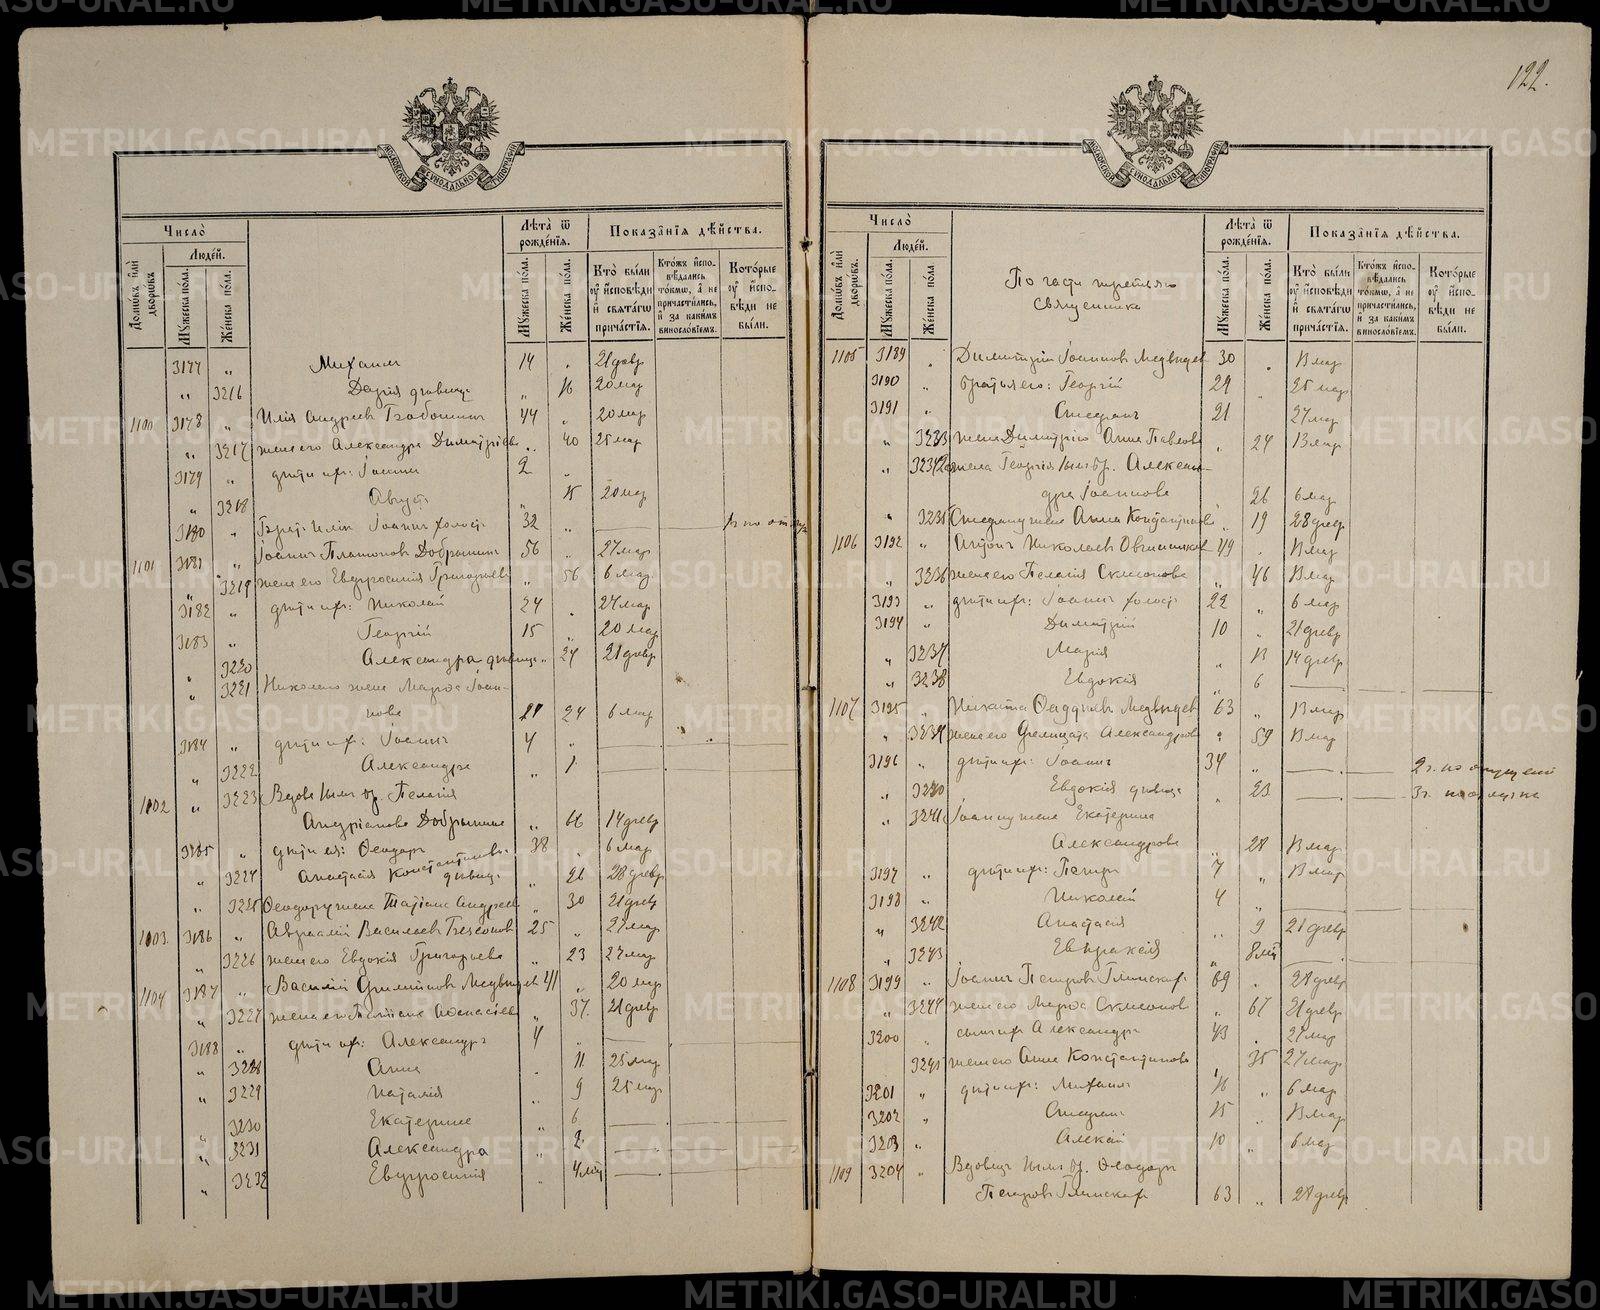 122.
МОСКОВСКОЙ СѴНОДАЛЬНОЙ ТИПОГРАФІИ
Число̀
Людей.
Домѡвъ и҆лѝ дворѡвъ.
Мꙋжеска по́ла.
Же́нска по́ла.
Лѣ́та ѿ рожде́нїѧ.
Мꙋжеска по́ла.
Же́нска по́ла.
Показа́нїѧ дѣ́йства.
Кто̀ бы́ли ᲂу҆ и҆сповѣди и҆ свѧта́гѡ прича́стїѧ.
Кто́жъ и҆спо-вѣдались то́кмѡ, а҆ не причасти́лись, и҆ за каки́мъ винословїемъ.
Кото́рые ᲂу҆ и҆спо-вѣди не бы́ли.
3177 „ Михаилъ 14 „ 21 февр
„ 3216 Дарія дѣвица „ 16 20 мар
1100 3178 „ Илія Андреевъ 44 „ 20 мар
„ 3217 жена его Александра Димитріева „ 40 25 мар
3179 „ дѣти ихъ: Іоаннъ 2 „
„ 3218 Августа „ 15 20 мар
3180 „ Братъ Иліи Іоаннъ холостъ 32 „
1101 3181 „ Іоаннъ Платоновъ Добрынинъ 56 „ 27 мар
„ 3219 жена его Евфросинія Григорьева „ 56 6 мар
3182 „ дѣти ихъ: Николай 24 „ 24 мар
3183 „ Георгій 15 „ 20 мар
„ 3220 Александра дѣвица „ 24 21 февр
„ 3221 Николаю жена Марѳа Іоан-
нова 24 6 мар
3184 „ дѣти ихъ: Іоаннъ 4 „
„ 3222 Александра „ 1
1102 „ 3223 Вдова Пелагія
Андріанова Добрынина „ 66 14 февр
3185 „ дѣти ея: Ѳеодоръ 38 „ 6 мар
„ 3224 Анастасія Константинова дѣвица „ 26 28 февр
„ 3225 Ѳеодору жена Татіана Андреева „ 30 21 февр
1103 3186 „ Авраамій Васильевъ 25 „ 27 мар
„ 3226 жена его Евдокія Григорьева „ 23 27 мар
1104 3187 „ Василій Филиповъ Медвѣдевъ 41 „ 20 мар
„ 3227 жена его Татіана Аѳанасіева „ 37 21 февр
3188 „ дѣти ихъ: Александръ 4 „
„ 3228 Анна „ 11 25 мар
„ 3229 Наталія „ 9 25 мар
„ 3230 Екатерина „ 6
„ 3231 Александра „ 2
„ 3232 Евфросинія „ 4 мѣс
МОСКОВСКОЙ СѴНОДАЛЬНОЙ ТИПОГРАФІИ
Число̀
Людей.
Домѡвъ и҆лѝ дворѡвъ.
Мꙋжеска по́ла.
Же́нска по́ла.
По части третьяго
священника
Лѣ́та ѿ рожде́нїѧ.
Мꙋжеска по́ла.
Же́нска по́ла.
Показа́нїѧ дѣ́йства.
Кто̀ бы́ли ᲂу҆ и҆сповѣди и҆ свѧта́гѡ прича́стїѧ.
Кто́жъ и҆спо-вѣдались то́кмѡ, а҆ не причасти́лись, и҆ за каки́мъ винословїемъ.
Кото́рые ᲂу҆ и҆спо-вѣди не бы́ли.
1105 3189 „ Димитрій Іоанновъ Медвѣдевъ 30 „ 13 мар
3190 „ братья его: Георгій 29 „ 25 мар
3191 „ Стефанъ 21 „ 27 мар
„ 3233 жена Димитрія Анна Павлова „ 24 13 мар
„ 3234 жена Георгія Алексан-
дра Іоаннова „ 26 6 мар
„ 3235 Стефану жена Анна Константинова „ 19 28 февр
1106 3192 „ Антонъ Николаевъ Овчинниковъ 49 „ 13 мар
„ 3236 жена его Пелагія Симеонова „ 46 13 мар
3193 „ дѣти ихъ: Іоаннъ холостъ 22 „ 6 мар
3194 „ Димитрій 10 „ 21 февр
„ 3237 Марія „ 13 14 февр
„ 3238 Евдокія „ 6
1107 3195 „ Никита Ѳаддеевъ Медвѣдевъ 63 „ 13 мар
„ 3239 жена его Фелицата Александрова „ 59 13 мар
3196 „ дѣти ихъ: Іоаннъ 34 „ 2 г. по опущенію
„ 3240 Евдокія дѣвица „ 23 3 г. по отлучкѣ
„ 3241 Іоанну жена Екатерина
Александрова „ 28 13 мар
3197 „ дѣти ихъ: Петръ 7 „ 13 мар
3198 „ Николай 4 „
„ 3242 Анастасія „ 9 21 февр
„ 3243 Евпраксія „ 8 мѣс
1108 3199 „ Іоаннъ Петровъ Глинскихъ 69 „ 28 февр
„ 3244 жена его Марѳа Симеонова „ 67 21 февр
3200 „ сынъ ихъ Александръ 43 „ 27 мар
3245 жена его Анна Константинова 35 27 мар
3201 „ дѣти ихъ: Михаилъ 16 „ 6 мар
3202 „ Стефанъ 15 „ 13 мар
3203 „ Алексій 10 „ 6 мар
1109 3204 „ Вдовецъ Ѳеодоръ
Петровъ Глинскихъ 63 „ 28 февр
METRIKI.GASO-URAL.RU